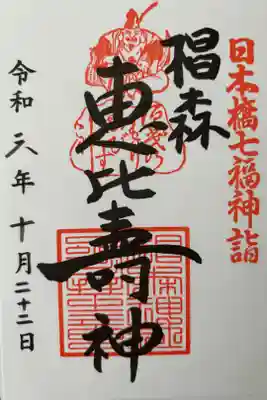 日本橋七福神詣
椙森
恵比壽神
令和元年十月二十二日